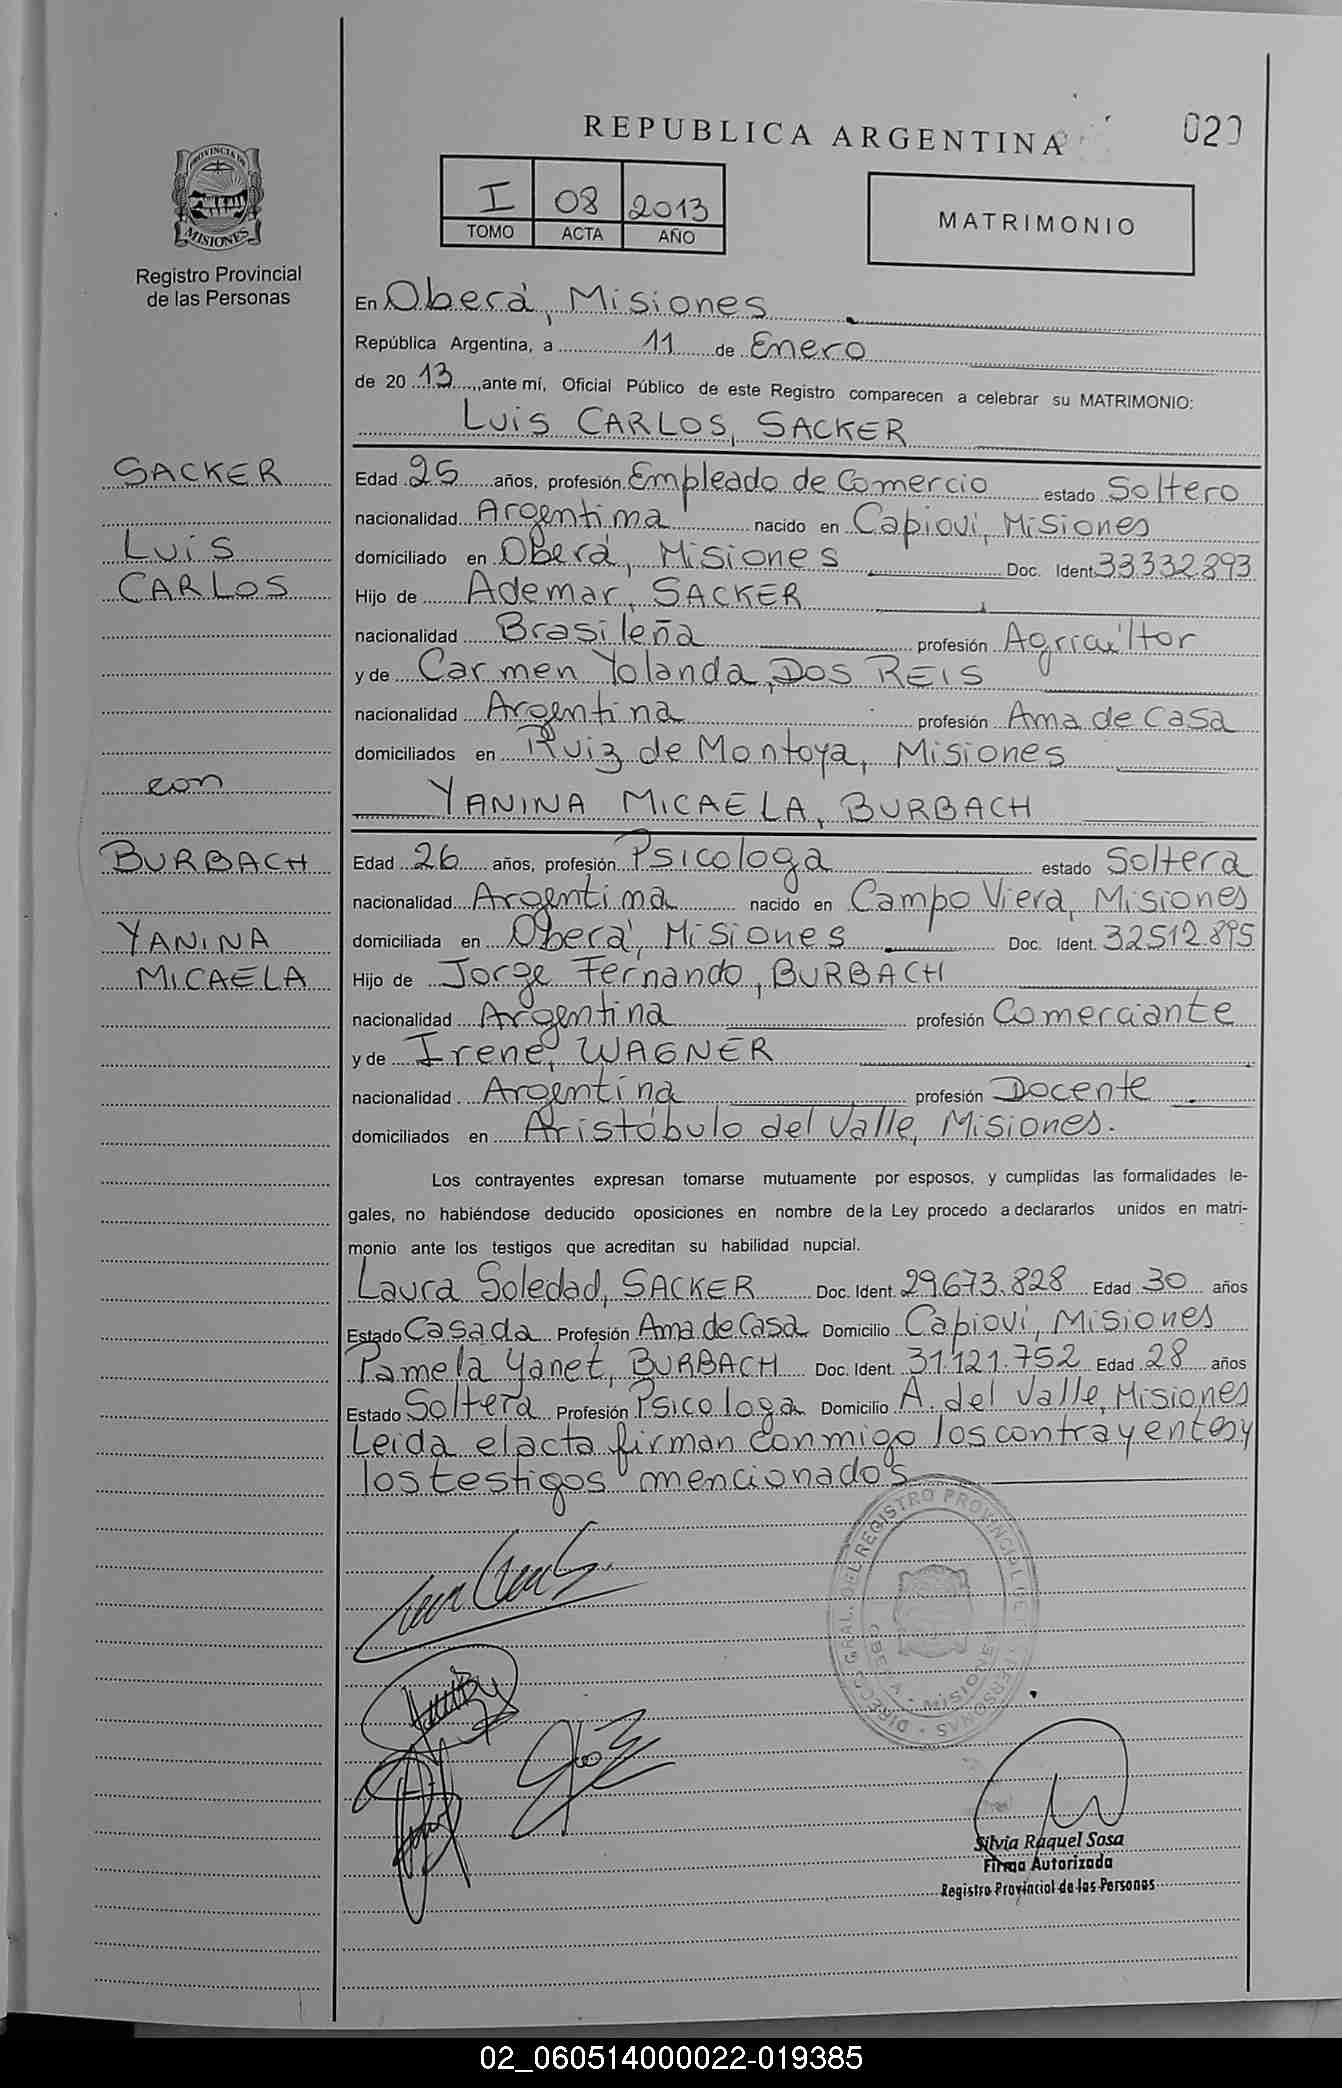 REPUBLICA ARGENTINA
PROVINCIA DE
MISIONES
Registro Provincial
de las Personas
I 08 2013
TOMO ACTA AÑO
MATRIMONIO
En Oberá, Misiones
República Argentina, a 11 de Enero
de 20 13, ante mí, Oficial Público de este Registro comparecen a celebrar su MATRIMONIO:
Luis CARLOS, SACKER
SACKER
Luis
CARLOS
Edad 25 años, profesión Empleado de Comercio estado Soltero
nacionalidad Argentina nacido en Capioví, Misiones
domiciliado en Oberá, Misiones Doc. Ident. 33332893
Hijo de Ademar, SACKER
nacionalidad Brasileña profesión Agricultor
y de Carmen Yolanda, DOS REIS
nacionalidad Argentina profesión Ama de Casa
domiciliados en Ruiz de Montoya, Misiones
con
YANINA MICAELA, BURBACH
BURBACH
YANINA
MICAELA
Edad 26 años, profesión Psicologa estado Soltera
nacionalidad Argentina nacido en Campo Viera, Misiones
domiciliada en Oberá, Misiones Doc. Ident. 32512.895
Hijo de Jorge Fernando, BURBACH
nacionalidad Argentina profesión Comerciante
y de Irene, WAGNER
nacionalidad Argentina profesión Docente
domiciliados en Aristóbulo del Valle, Misiones.
Los contrayentes expresan tomarse mutuamente por esposos, y cumplidas las formalidades le-
gales, no habiéndose deducido oposiciones en nombre de la Ley procedo a declararlos unidos en matri-
monio ante los testigos que acreditan su habilidad nupcial.
Laura Soledad, SACKER Doc. Ident. 29.673.828 Edad 30 años
Estado Casada Profesión Ama de Casa Domicilio Capioví, Misiones
Pamela Yanet, BURBACH Doc. Ident. 31.121.752 Edad 28 años
Estado Soltera Profesión Psicologa Domicilio A. del Valle, Misiones
Leida el acta firman conmigo los contrayentes y
los testigos mencionados
DIRECC. GRAL. DEL REGISTRO PROVINCIAL DE PERSONAS
OBERA - MISIONES
Silvia Raquel Sosa
Firma Autorizada
Registro Provincial de las Personas
02_060514000022-019385